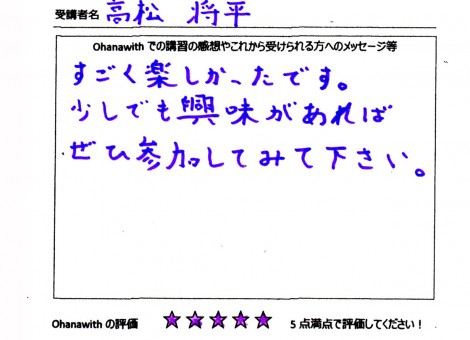 受講者名 高松 将平
Ohanawith での講習の感想やこれから受けられる方へのメッセージ等
すごく楽しかったです。
少しでも興味があれば
ぜひ参加してみて下さい。
Ohanawith の評価 ★★★★★ 5 点満点で評価してください！